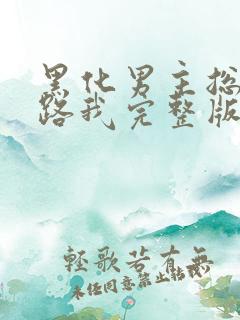 黑化男主总
路我完整版
轻歌若有無
未经同意禁止转载